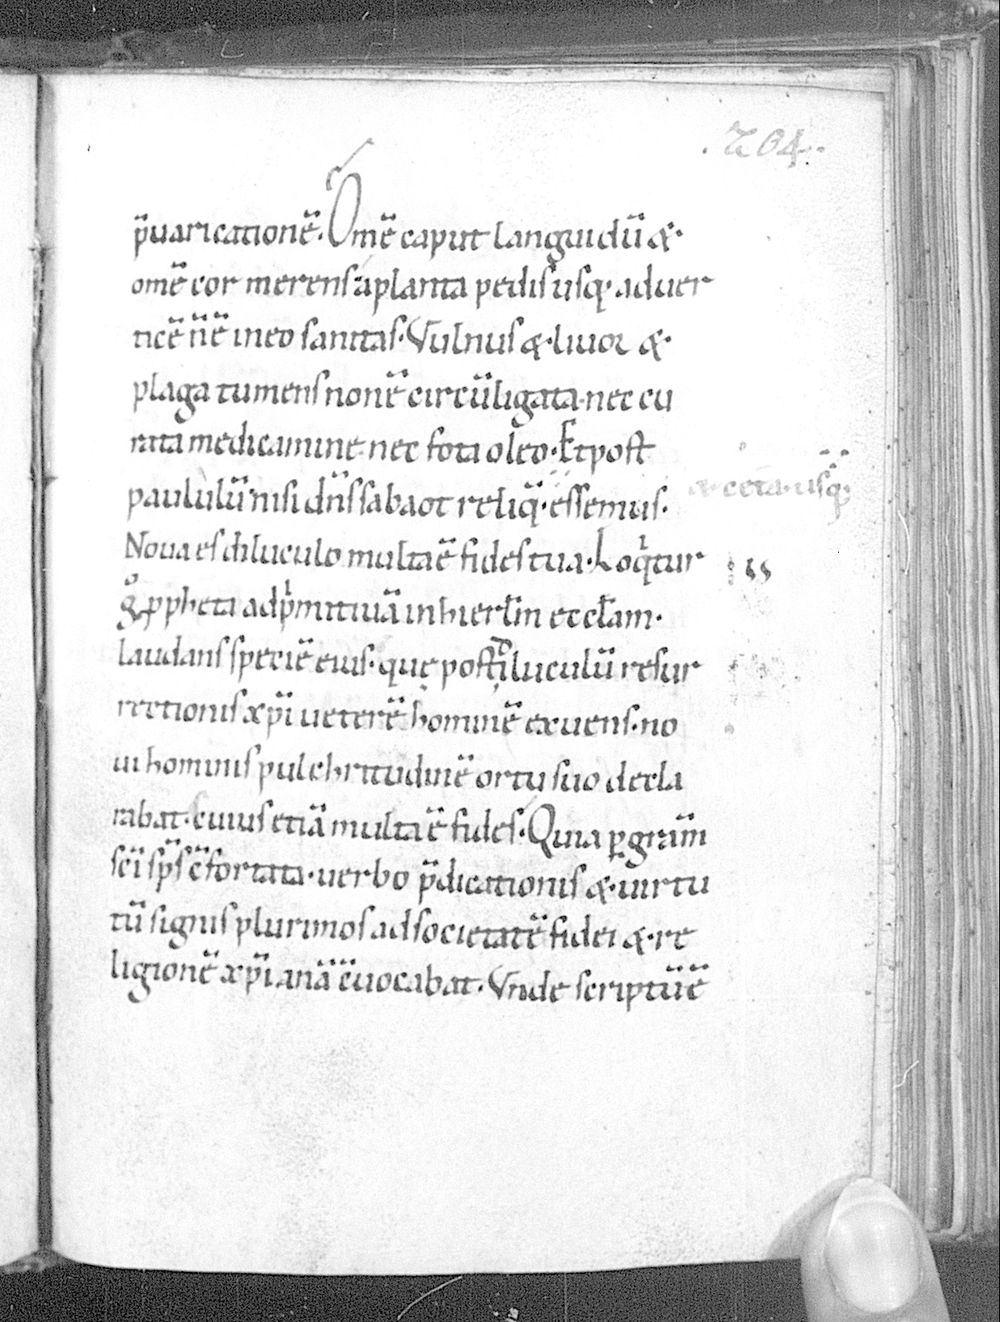 .204.
p̄uaricationē. Omē caput languidū &.
omē cor merens a planta pedis usq; ad uer
ticē n̄ ē in eo sanitas. Vulnus &. liuor &.
plaga tumens non ē circūligata. nec cu
rata medicamine. nec fota oleo. Et post
paululū nisi dn̄s sabaot reliq̄. essemus.
&. cet̄a. usq;
Noua es diluculo multa ē fides tua. Loqͥtur
gͦ ꝓpheta ad pͥmitiuā in hierlm̄ eccłam.
laudans speciē eius. quę post diluculū resur
rectionis xp̄i ueterē hominē exuens. no
ui hominis pulchritudinē ortu suo decla
rabat. cuius etiā multa ē fides. Quia ꝑ grām
sc̄i sp̄s c̄fortata. uerbo p̄dicationis &. uirtu
tū signis plurimos ad societatē fidei &. re
ligionē xp̄ianā c̄uocabat. Vnde scriptū ē